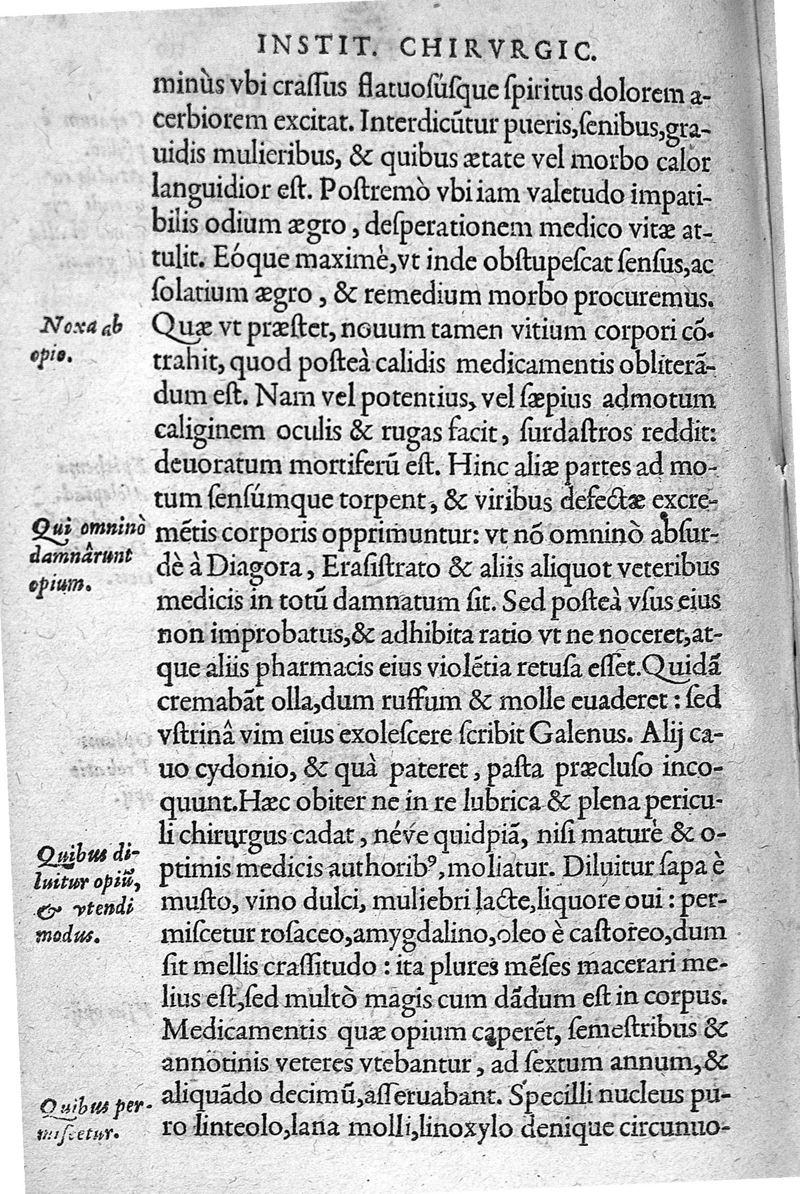 INSTIT. CHIRVRGIC.
minùs vbi craſſus flatuoſúſque ſpiritus dolorem a-
cerbiorem excitat. Interdicũtur pueris,ſenibus,gra-
uidis mulieribus, & quibus ætate vel morbo calor
languidior eſt. Poſtremò vbi iam valetudo impati-
bilis odium ægro, deſperationem medico vitæ at-
tulit. Eóque maximè,vt inde obſtupeſcat ſenſus,ac
ſolatium ægro, & remedium morbo procuremus.
Noxa ab
opio.
Quæ vt præſtet, nouum tamen vitium corpori cõ-
trahit, quod poſteà calidis medicamentis obliterã-
dum eſt. Nam vel potentius, vel ſæpius admotum
caliginem oculis & rugas facit, ſurdaſtros reddit:
deuoratum mortiferũ eſt. Hinc aliæ partes ad mo-
tum ſenſúmque torpent, & viribus defectæ excre-
Qui omninò
damnârunt
opium.
mẽtis corporis opprimuntur: vt nõ omninò abſur-
dè à Diagora, Eraſiſtrato & aliis aliquot veteribus
medicis in totũ damnatum ſit. Sed poſteà vſus eius
non improbatus,& adhibita ratio vt ne noceret,at-
que aliis pharmacis eius violẽtia retuſa eſſet.Quidã
cremabãt olla,dum ruffum & molle euaderet: ſed
vſtrinâ vim eius exoleſcere ſcribit Galenus. Alij ca-
uo cydonio, & quà pateret, paſta præcluſo inco-
quunt.Hæc obiter ne in re lubrica & plena pericu-
li chirurgus cadat, néve quidpiã, niſi maturè & o-
Quibus di-
luitur opiũ,
& vtendi
modus.
ptimis medicis authoribꝰ,moliatur. Diluitur ſapa è
muſto, vino dulci, muliebri lacte,liquore oui: per-
miſcetur roſaceo,amygdalino,oleo è caſtoreo,dum
ſit mellis craſſitudo: ita plures mẽſes macerari me-
lius eſt,ſed multò magis cum dãdum eſt in corpus.
Medicamentis quæ opium caperẽt, ſemeſtribus &
annotinis veteres vtebantur, ad ſextum annum,&
Quibus per-
miſcetur.
aliquãdo decimũ,aſſeruabant. Specilli nucleus pu-
ro linteolo,lana molli,linoxylo denique circunuo-